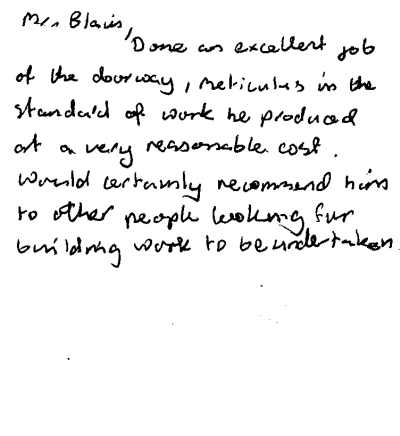 Mrs Blain,
Done an excellent job
of the doorway, meticulus in the
standard of work he produced
at a very reasonable cost.
Would certainly recommend him
to other people looking for
building work to be undertaken